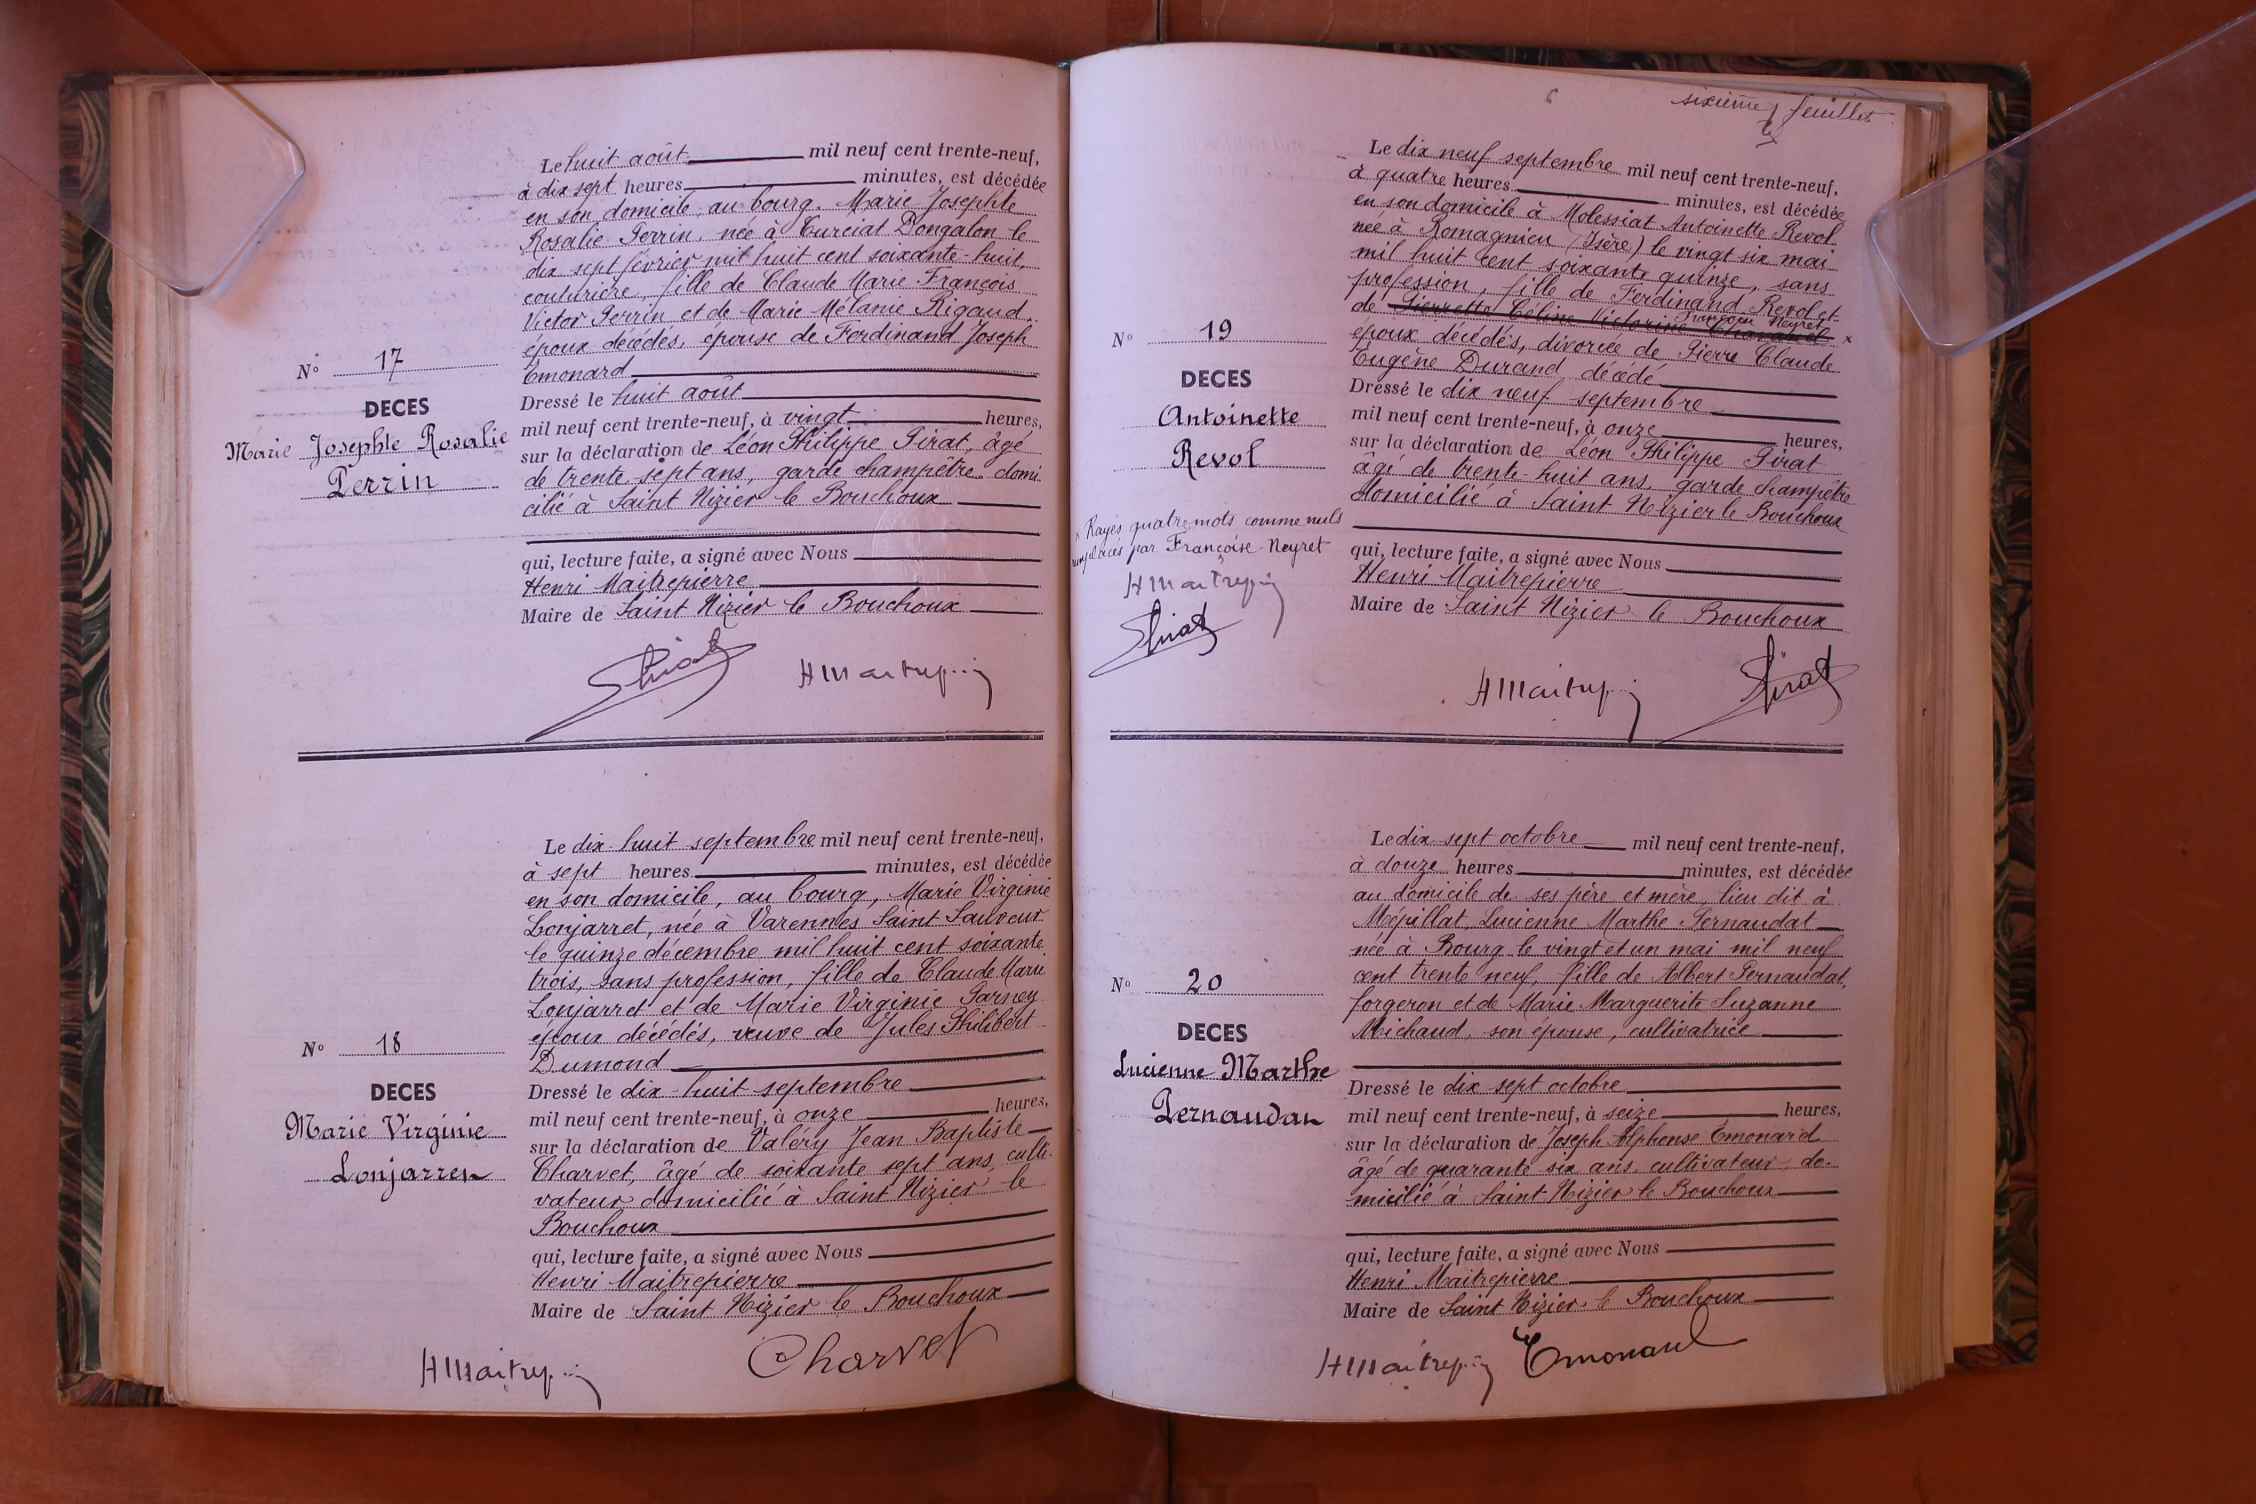 Le huit août mil neuf cent trente-neuf,
à dix sept heures minutes, est décédée
en son domicile, au bourg, Marie Josephte
Rosalie Perrin, née à Curciat Dongalon le
dix sept février mil huit cent soixante-huit,
couturière, fille de Claude Marie François
Victor Perrin et de Marie Mélanie Rigaud,
époux décédés, épouse de Ferdinand Joseph
Emonard
N° 17
DECES
Marie Josephte Rosalie
Perrin
Dressé le huit août
mil neuf cent trente-neuf, à vingt heures,
sur la déclaration de Léon Philippe Pirat, âgé
de trente sept ans, garde champêtre domi
cilié à Saint Nizier le Bouchoux
qui, lecture faite, a signé avec Nous
Henri Maitrepierre
Maire de Saint Nizier le Bouchoux
Pirat HMaitrepierre
Le dix-huit septembre mil neuf cent trente-neuf,
à sept heures minutes, est décédée
en son domicile, au bourg, Marie Virginie
Lonjarret, née à Varennes Saint Sauveur
le quinze décembre mil huit cent soixante
trois, sans profession, fille de Claude Marie
Lonjarret et de Marie Virginie Parney
époux décédés, veuve de Jules Philibert
Dumond
N° 18
DECES
Marie Virginie
Lonjarret
Dressé le dix-huit septembre
mil neuf cent trente-neuf, à onze heures,
sur la déclaration de Valéry Jean Baptiste
Charvet, âgé de soixante sept ans, culti-
vateur domicilié à Saint Nizier le
Bouchoux
qui, lecture faite, a signé avec Nous
Henri Maitrepierre
Maire de Saint Nizier le Bouchoux
HMaitrepierre Charvet
6
sixième feuillet
Le dix neuf septembre mil neuf cent trente-neuf,
à quatre heures minutes, est décédée
en son domicile à Molessiat Antoinette Revol
née à Romagnieu (Isère) le vingt six mai
mil huit cent soixante quinze, sans
profession, fille de Ferdinand Revol et
Françoise Neyret
de Pierrette Céline Victorine x
époux décédés, divorcée de Pierre Claude
Eugène Durand décédé
N° 19
DECES
Antoinette
Revol
Dressé le dix neuf septembre
mil neuf cent trente-neuf, à onze heures,
sur la déclaration de Léon Philippe Pirat
âgé de trente-huit ans, garde champêtre
domicilié à Saint Nizier le Bouchoux
x Rayés quatre mots comme nuls
remplacés par Françoise Neyret
HMaitrepierre
Pirat
qui, lecture faite, a signé avec Nous
Henri Maitrepierre
Maire de Saint Nizier le Bouchoux
HMaitrepierre Pirat
Le dix sept octobre mil neuf cent trente-neuf,
à douze heures minutes, est décédée
au domicile de ses père et mère, lieu dit à
Mépillat, Lucienne Marthe Pernaudat
née à Bourg le vingt et un mai mil neuf
cent trente neuf, fille de Albert Pernaudat,
forgeron et de Marie Marguerite Suzanne
Michaud, son épouse, cultivatrice
N° 20
DECES
Lucienne Marthe
Pernaudat
Dressé le dix sept octobre
mil neuf cent trente-neuf, à seize heures,
sur la déclaration de Joseph Alphonse Emonard
âgé de quarante-six ans, cultivateur, do-
micilié à Saint-Nizier le Bouchoux
qui, lecture faite, a signé avec Nous
Henri Maitrepierre
Maire de Saint Nizier le Bouchoux
HMaitrepierre Emonard